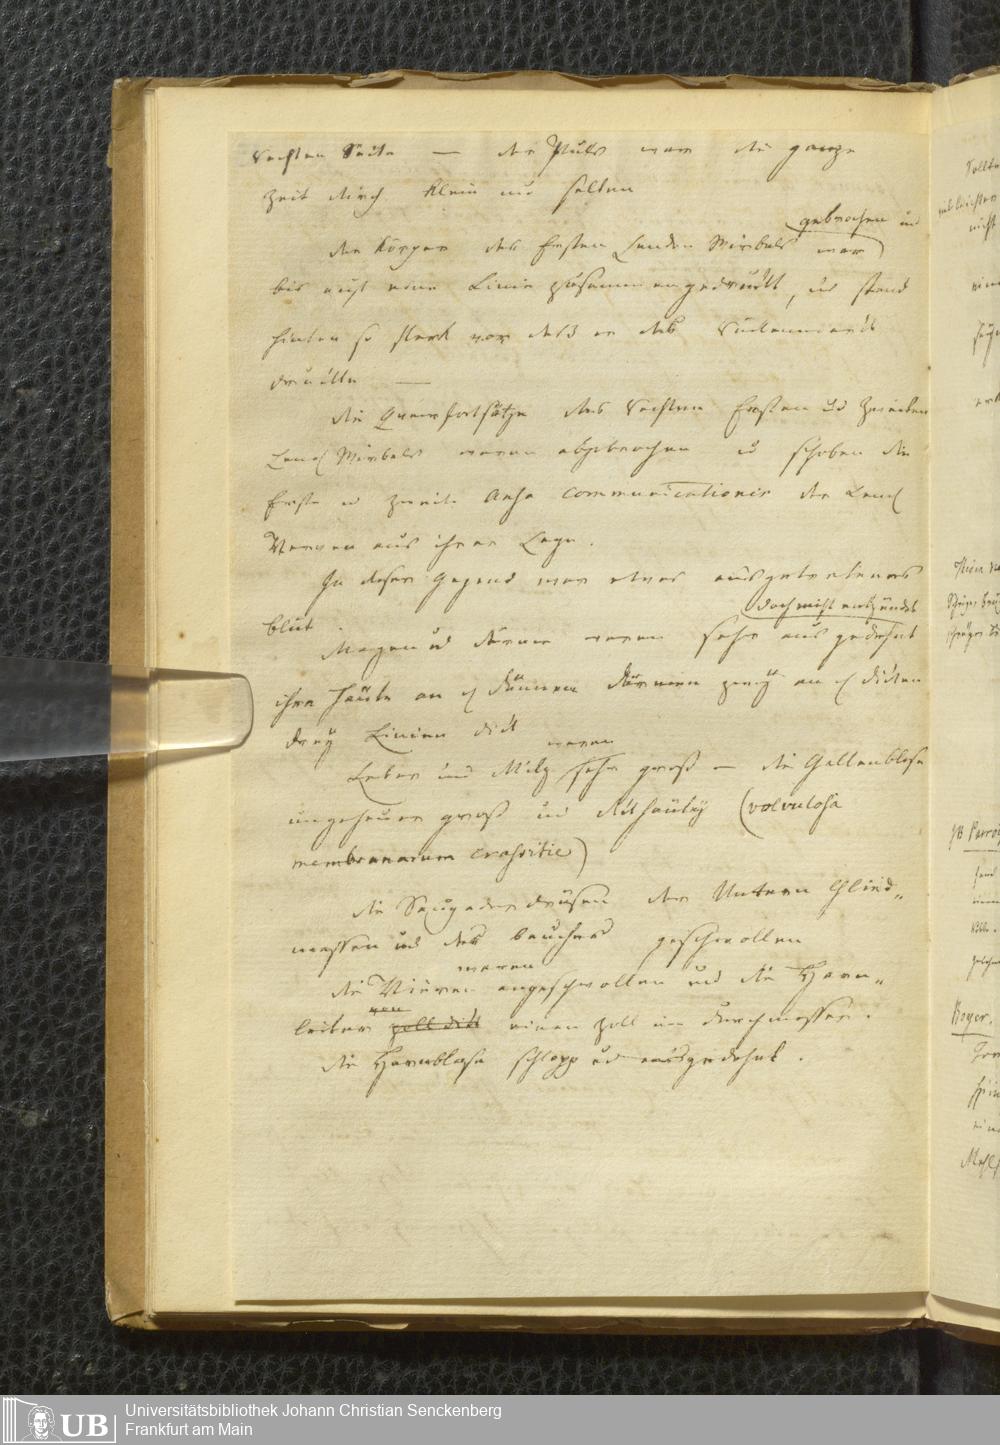 rechten Seite — der Puls war die ganze
Zeit durch klein und selten
gebrochen und
der Körper des Ersten Lenden Wirbels war
bis auf eine Linie zusammengedrückt, und stand
hinten so stark vor daß er das Rückenmark
drückte —
die Queerfortsätze des rechten Ersten und zweiten
Lend Wirbels waren abgebrochen u schoben die
Erste u zweite Ansa communicationis der Lend
Nerven aus ihrer Lage.
In dieser Gegend war etwas ausgetretenes
blut.
doch nicht entzündet
Magen und därme waren sehr ausgedehnt
ihre Häute an d dünnen Därmen zwey an d dicken
drey Linien dick
waren
Leber und Milz sehr groß — die Gallenblase
ungeheuer groß und dickhäutig (volvulosa
membranarum crassitie)
die Saugaderdrüsen der Untern Glied„
massen und des bauches geschwollen
waren
die Nieren angeschwollen und die Harn„
von
leiter zoll dick einen Zoll im durchmesser.
die Harnblase schlapp und ausgedehnt.
JB
Boyer.
UB
Universitätsbibliothek Johann Christian Senckenberg
Frankfurt am Main